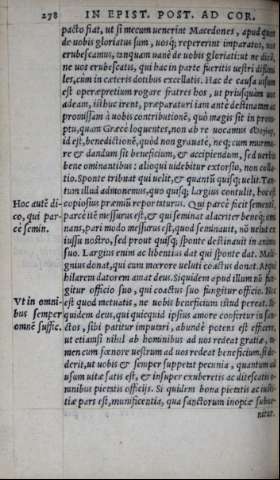 278 IN EPIST. POST. AD COR.
pacto fiat, ut si mecum uenerint Macedones, apud quos
de uobis gloriatus sum, uosq; repererint imparatos, nos
erubescamus, tanquam uanè de uobis gloriati: ut ne dicã,
ne uos erubescatis, qui hac in parte fueritis uestri dissimi
les, cùm in cæteris dotibus excellatis. Hac de causa uisum
est operæpretium rogare fratres hos, ut priusquam uos
adeam, istbuc irent, præpararent iam antè destinatam ac
promissam à uobis contributionē, quò magis sit in prom
ptu, quam Græcè loquentes, non ab re uocamus
id est, benedictionē, quòd non grauatè, neq; cum murmu
re & dandum sit beneficium, & accipiendum, sed uerbis
bene ominantibus: alioqui uidebitur extorsio, non colla
tio. Sponte tribuat qui uelit, & quantū quisq; uelit. Tan
tum illud admonemus, quo quisq; largius contulit, hoc et
Hoc autē di copiosius præmiū reportaturus. Qui parcè fecit sementē,
co, qui par- parcè itē messurus est, & qui seminat alacriter beneq; omi
cè semin. nans, pari modo messurus est, quod seminauit, nō uelut ex
iussu nostro, sed prout quisq; sponte destinauit in animo
suo. Largius enim ac libentius dat qui sponte dat. Mali-
gnius donat, qui cum mœrore ueluti coactus donat. Atqui
hilarem datorem amat deus. Siquidem apud illum nō fun
gitur officio suo, qui coactus suo fungitur officio. Nec
Vt in omni- est quod metuatis, ne uobis beneficium istud pereat. Si
bus semper quidem deus, qui quicquid ipsius amore confertur in san-
omnē suffic. ctos, sibi patitur imputari, abundè potens est efficere,
ut etiamsi nihil ab hominibus ad uos redeat gratiæ, ta-
men cum fœnore uestrum ad uos redeat beneficium,
derit, ut uobis & semper suppetat pecunia, quantum ad
usum uitæ satis est, & insuper exuberetis ac ditescatis o-
mnibus pietatis officijs. Si quidem bona pietatis ac iusti-
tiæ pars est, munificentia, qua sanctorum inopiæ subue-
nitur.